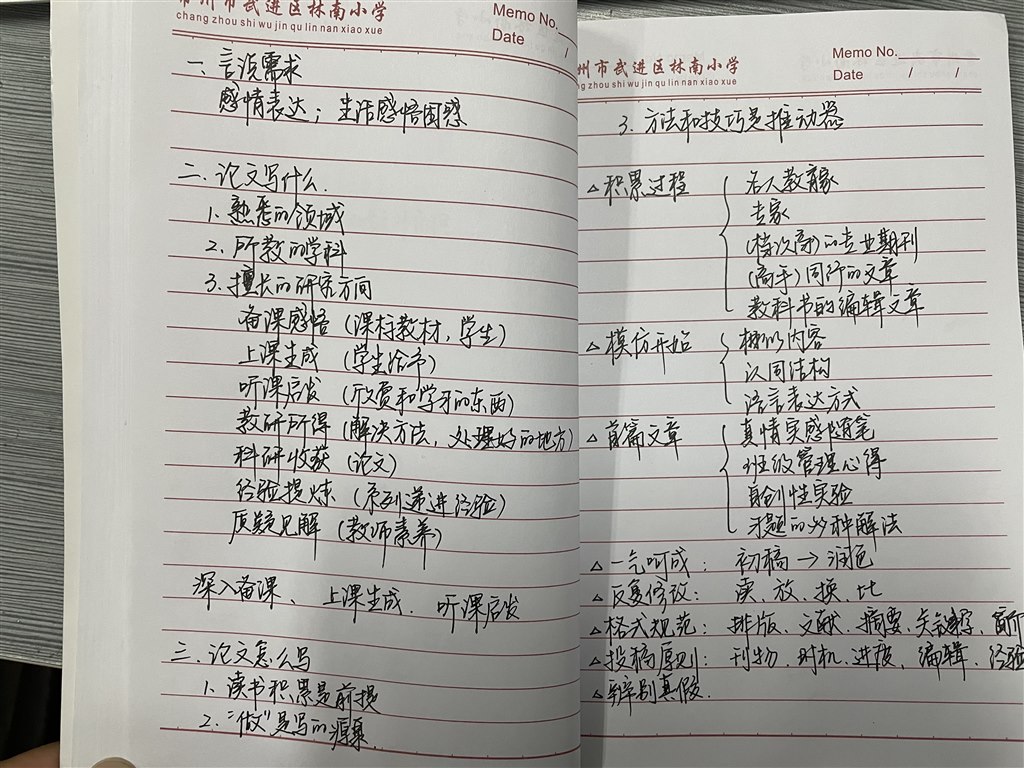 常州市武进区林南小学
chang zhou shi wu jin qu lin nan xiao xue
Memo No.
Date /
一、言说需求
感情表达；生活感悟困惑
二、论文写什么.
1. 熟悉的领域
2. 所教的学科
3. 擅长的研究方向
备课感悟（课标教材，学生）
上课生成（学生给予）
听课启发（欣赏和学习的东西）
教研所得（解决方法，处理好的地方）
科研收获（论文）
经验提炼（系列递进经验）
质疑见解（教师素养）
深入备课、上课生成、听课启发
三、论文怎么写
1. 读书积累是前提
2. “做”是写的源泉
州市武进区林南小学
ng zhou shi wu jin qu lin nan xiao xue
Memo No.
Date / /
3. 方法和技巧是推动器
△积累过程 { 名人教育家
专家
(档次高)的专业期刊
(高手)同行的文章
教科书的编辑文章
△模仿开始 { 相似内容
认同结构
语言表达方式
△首篇文章 { 真情实感随笔
班级管理心得
自创性实验
习题的妙种解法
△一气呵成：初稿→润色
△反复修改：读、放、换、比
△格式规范：排版、文献、摘要、关键字、
△投稿原则：刊物、时机、进度、编辑、经验
△辨别真假.